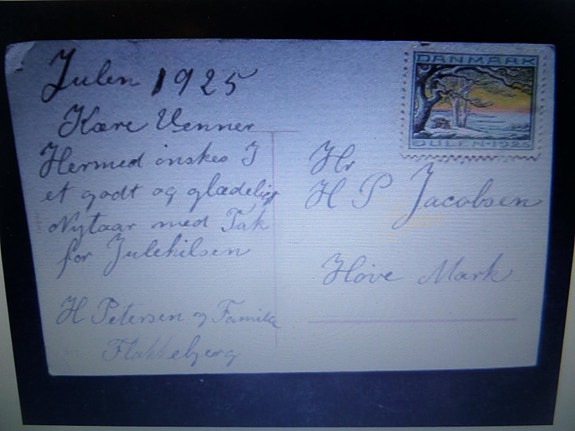 Julen 1925
Kære Venner
Hermed önskes I
et godt og glædeligt
Nytaar med Tak
for Julehilsen
H Petersen og Familie
Flakkebjerg
DANMARK
JULEN·1925
Hr
H P Jacobsen
Höve Mark